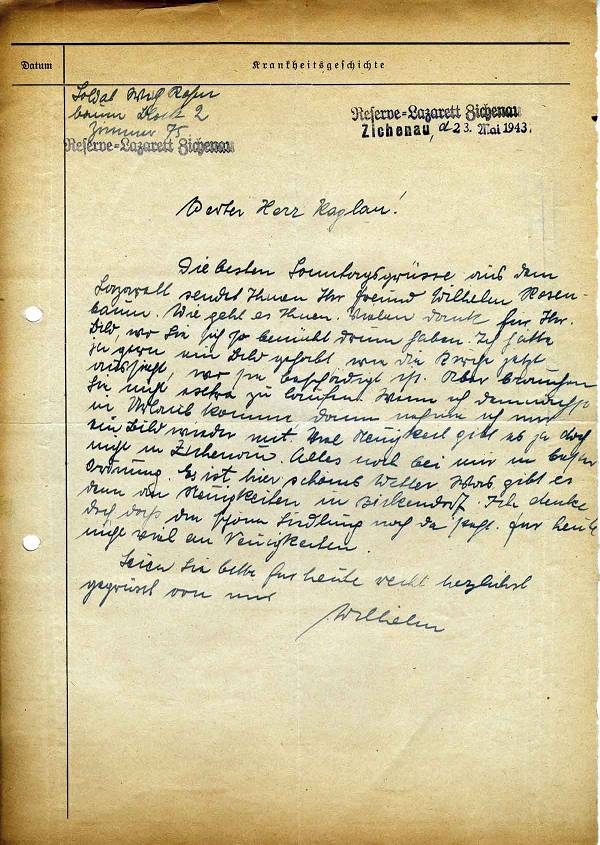 Datum Krankheitsgeschichte
Soldat Wilh Rosen
baum Block 2
Zimmer 75
Reserve-Lazarett Zichenau
Reserve-Lazarett Zichenau
Zichenau, d. 23. Mai 1943.
Werter Herr Kaplan!
Die besten Sonntagsgrüsse aus dem
Lazarett sendet Ihnen Ihr Freund Wilhelm Rosen-
baum. Wie geht es Ihnen. Vielen dank für Ihr
Bild, wo Sie sich so bemüht drum haben. Ich hätte
ja gern ein Bild gehabt wie die Kirche jetzt
aussieht, wo sie beschädigt ist. Aber brauchen
Sie nicht extra zu laufen. Wenn ich demnächst
in Urlaub komme dann nehme ich mir
ein Bild wieder mit. Viel Neuigkeit gibt es ja doch
nicht in Zichenau. Alles noch bei mir in bester
Ordnung. Es ist hier schönes Wetter Was gibt es
denn an Neuigkeiten in Birkendorf. Ich denke
doch dass die schöne Siedlung noch da steht. Für heute
nicht viel an Neuigkeiten.
Seien Sie bitte für heute recht herzlichst
gegrüsst von mir
Wilhelm